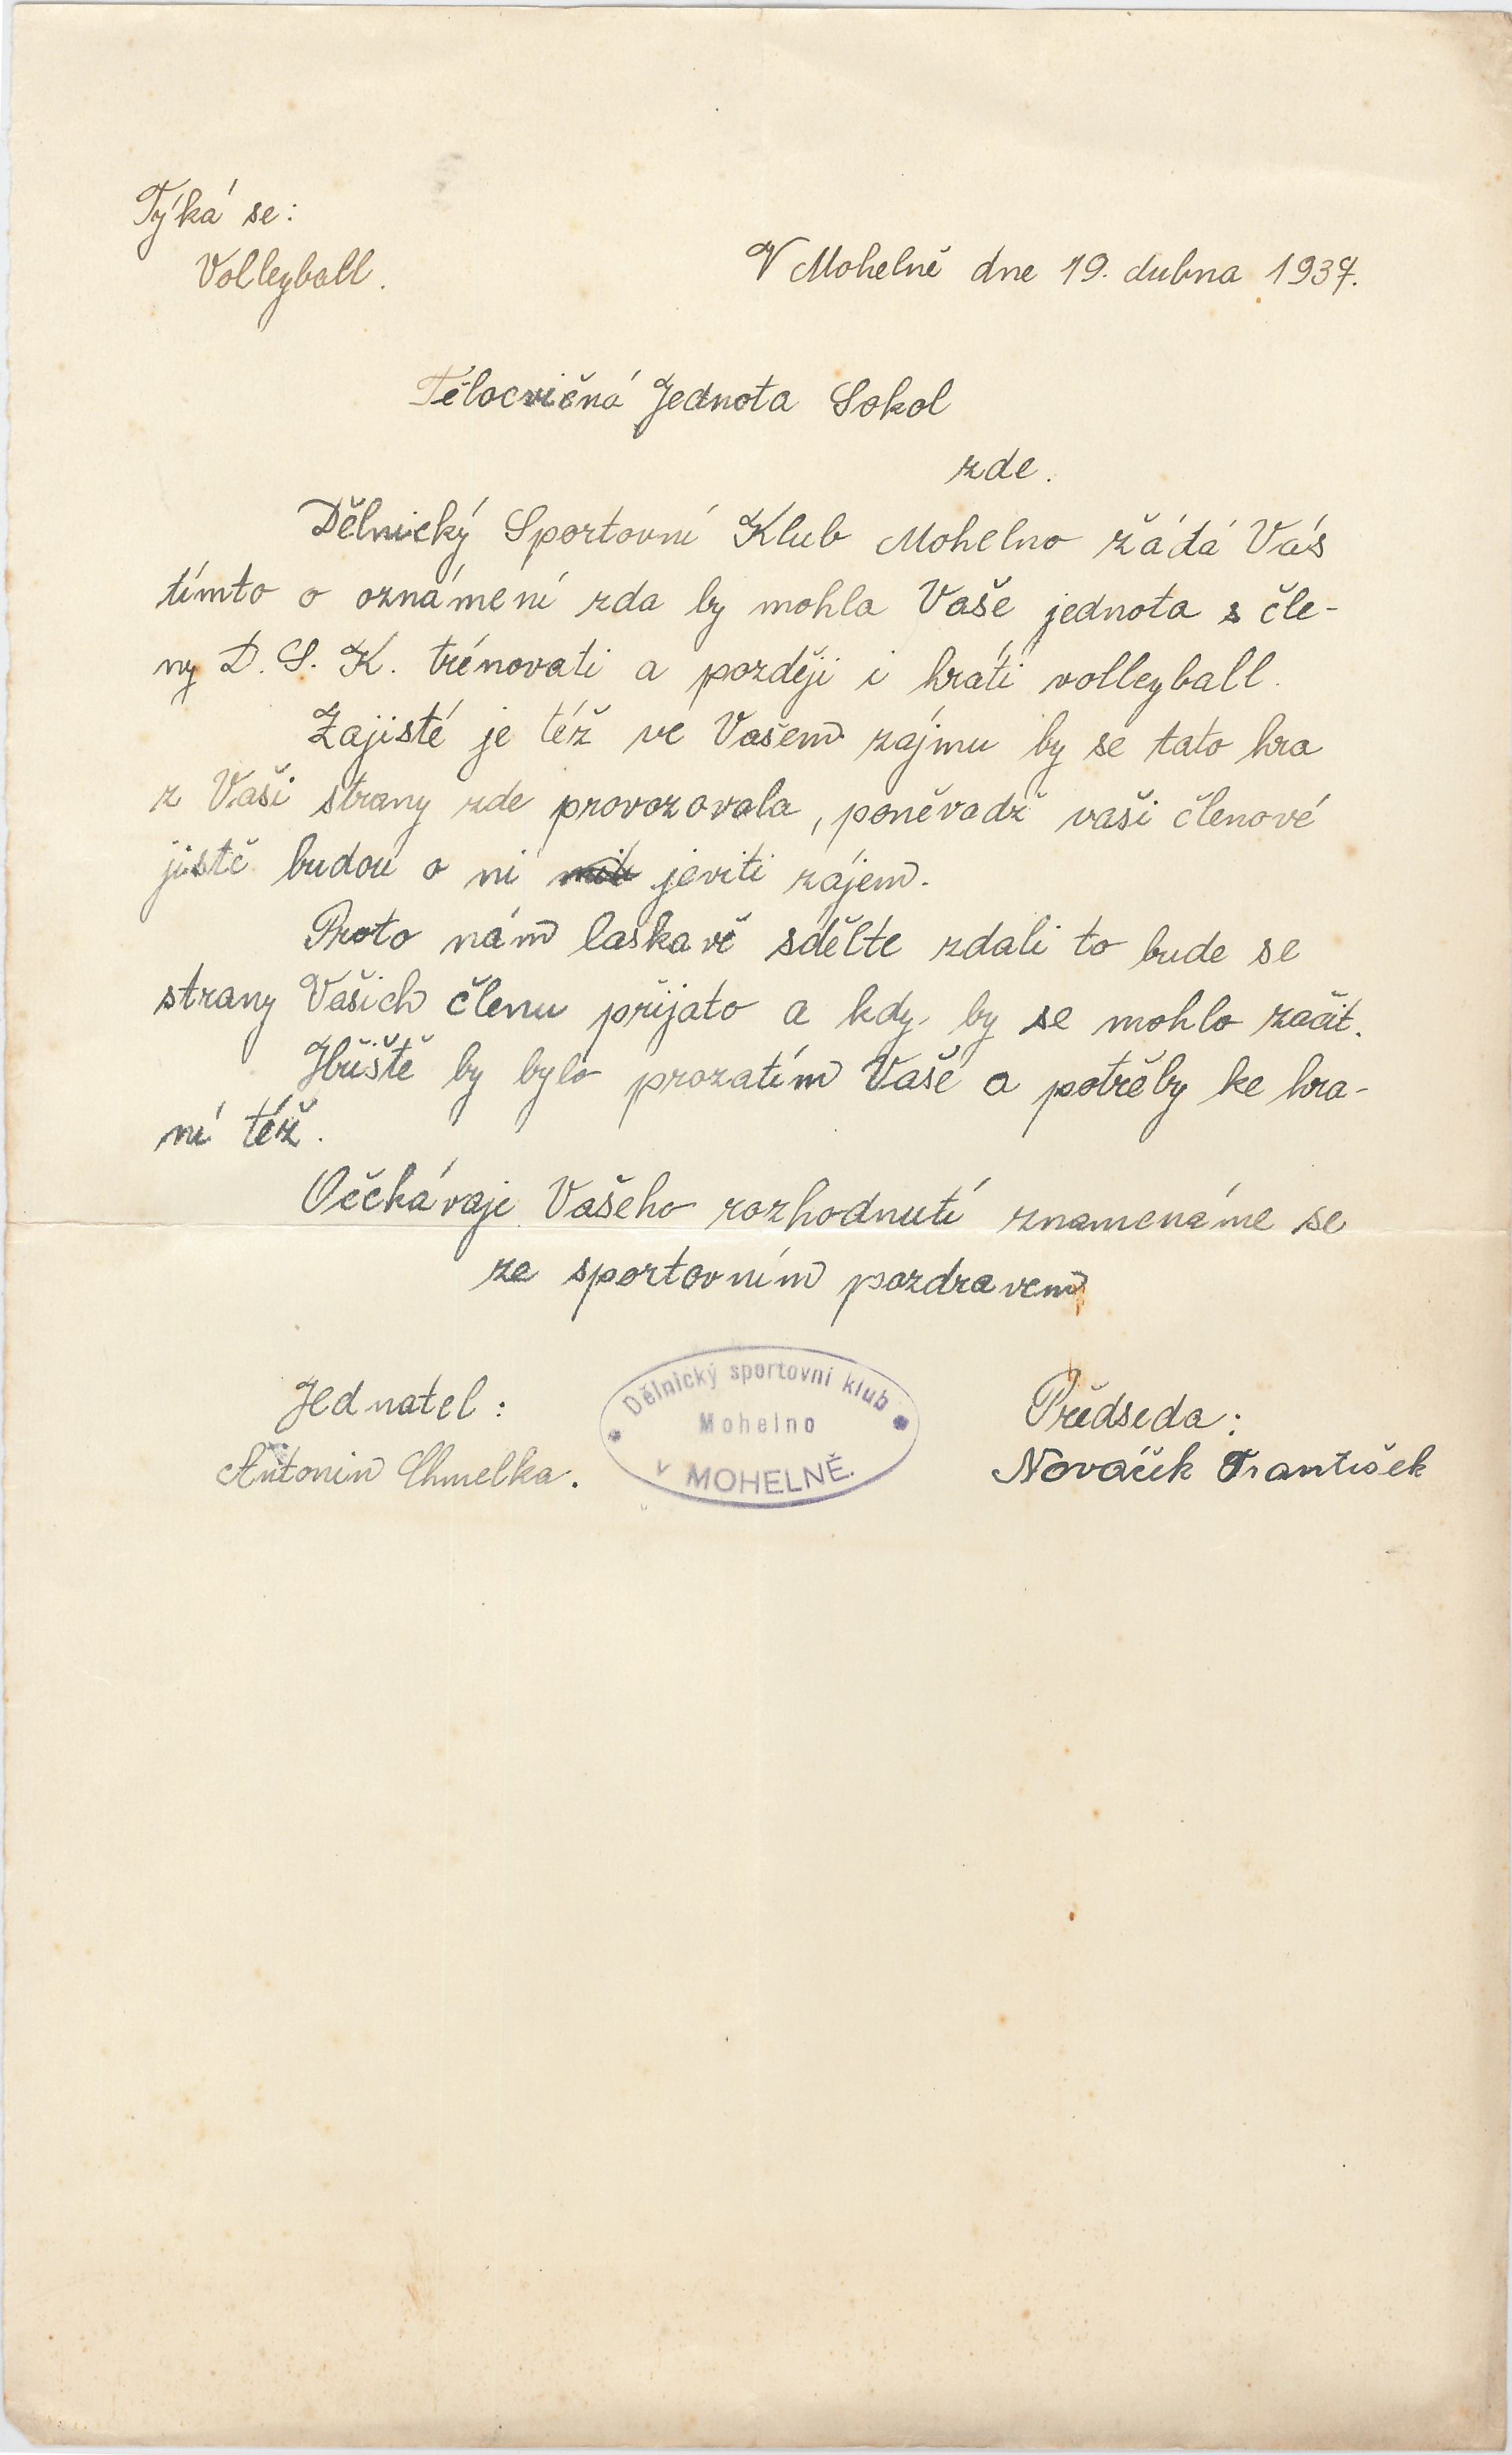 Týká se:
Volleyball.
V Mohelně dne 19. dubna 1937.
Tělocvičná Jednota Sokol
zde.
Dělnický Sportovní Klub Mohelno žádá Vás
tímto o oznámení zda by mohla Vaše jednota s čle-
ny D. S. K. trénovati a později i hráti volleyball.
Zajisté je též ve Vašem zájmu by se tato hra
z Vaši strany zde provozovala, poněvadž vaši členové
jistě budou o ni jeviti zájem.
Proto nám laskavě sdělte zdali to bude se
strany Vašich členu přijato a kdy by se mohlo začit.
Hřiště by bylo prozatím Vaše a potřeby ke hra-
ní též.
Očekávaje Vašeho rozhodnutí znamenáme se
ze sportovním pozdravem
Jednatel:
Antonin Chmelka.
Dělnický sportovní klub
Mohelno
v MOHELNĚ.
Předseda:
Nováček František